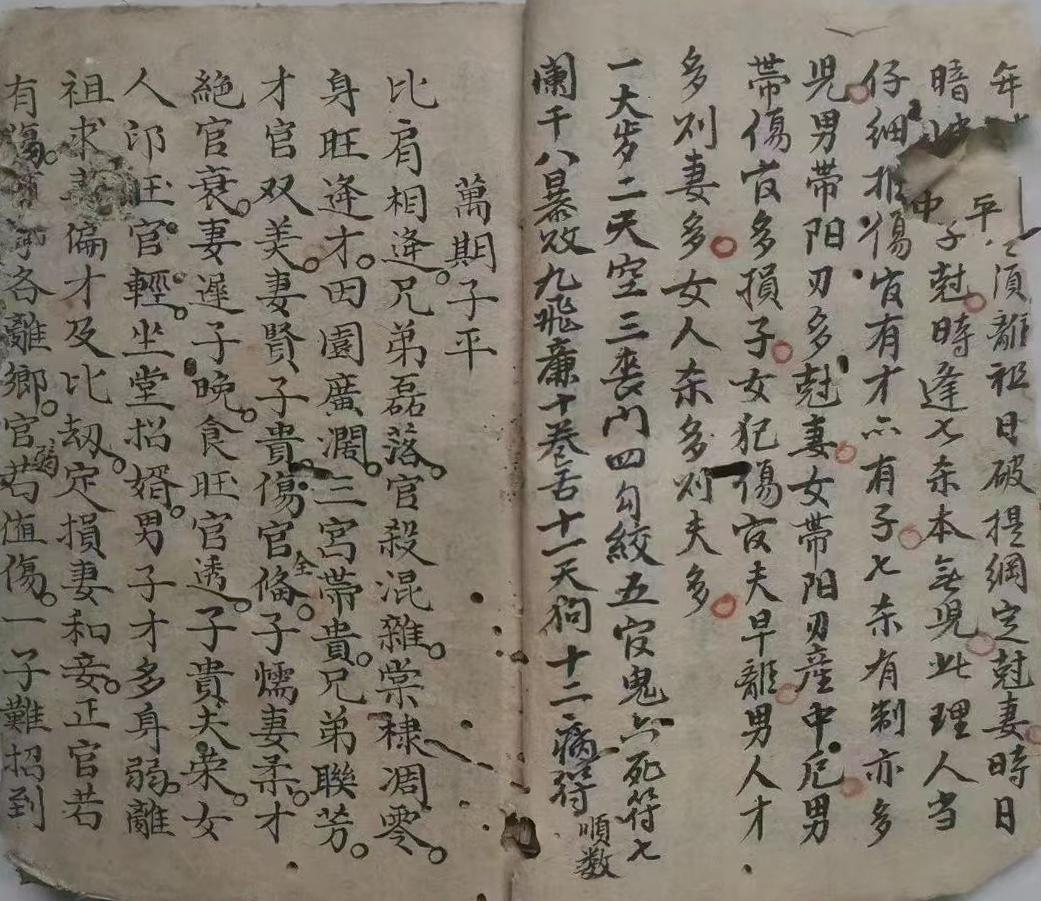 年 平 須離祖日破提綱定尅妻時日
暗冲 冲子尅時逢七杀本無児此理人当
仔細推傷官有才亦有子七杀有制亦多
児男带阳刃多尅妻女带阳刃産中厄男
帶傷官多損子女犯傷官夫早離男人才
多刘妻多女人杀多刘夫多
一大岁二天空三丧门四勾絞五官鬼六死符七
闌干八暴败九飛廉十卷舌十一天狗十二病符
順数
萬期子平
比肩相逄兄弟磊落官殺混雜棠棣凋零
身旺逄才田園廣濶三宮帶貴兄弟聯芳
才官双美妻賢子貴傷官全俻子懦妻柔才
絶官衰妻遅子晚食旺官透子貴夫荣女
人印旺官輕坐堂招婿男子才多身弱離
祖求 偏才及比刼定損妻和妾正官若
有傷 各離鄉官弱若值傷一子難招到